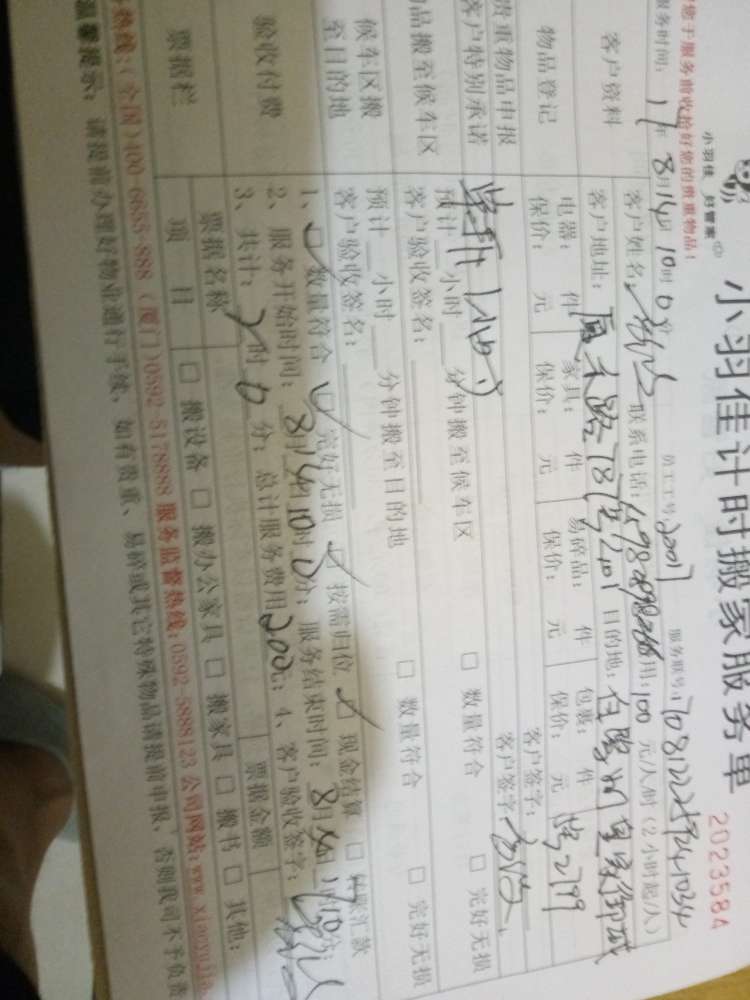 小羽佳计时搬家服务单
2023584
小羽佳 好管家
您于服务前收拾好您的贵重物品!
服务时间: 17年 8月14日 10时 0分 员工工号: 2007 服务联号:
客户资料
客户姓名: 联系电话: 费用: 100 元/人/时 (2小时起/人)
客户地址: 厦禾路 目的地:
物品登记
电器: 件 家具: 件 易碎品: 件 包裹: 件
保价: 元 保价: 元 保价: 元 保价: 元
贵重物品申报
客户特别承诺
客户签字:
客户签字:
物品搬至候车区
预计 小时 分钟搬至候车区 □ 数量符合 □ 完好无损
客户验收签名:
候车区搬
至目的地
预计 小时 分钟搬至目的地 □ 数量符合 □ 完好无损
客户验收签名:
验收付费
1、□ 数量符合 □ 完好无损 □ 按需归位 □ 现金结算 □ 转账汇款
2、服务开始时间: 8月14日10时0分; 服务结束时间: 8月
3、共计: 2时0分; 总计服务费用200元; 4、客户验收签字:
票据栏
票据名称 票据金额
项 目 □ 搬设备 □ 搬办公家具 □ 搬家具 □ 搬书 □ 其他:
热线:(全国)400-6655-888 (厦门)0592-5178888 服务监督热线:0592-5888123 公司网站:www.xiaoyujia.
温馨提示: 请提前办理好物业通行手续, 如有贵重、易碎或其它特殊物品请提前申报, 否则我司不予负责